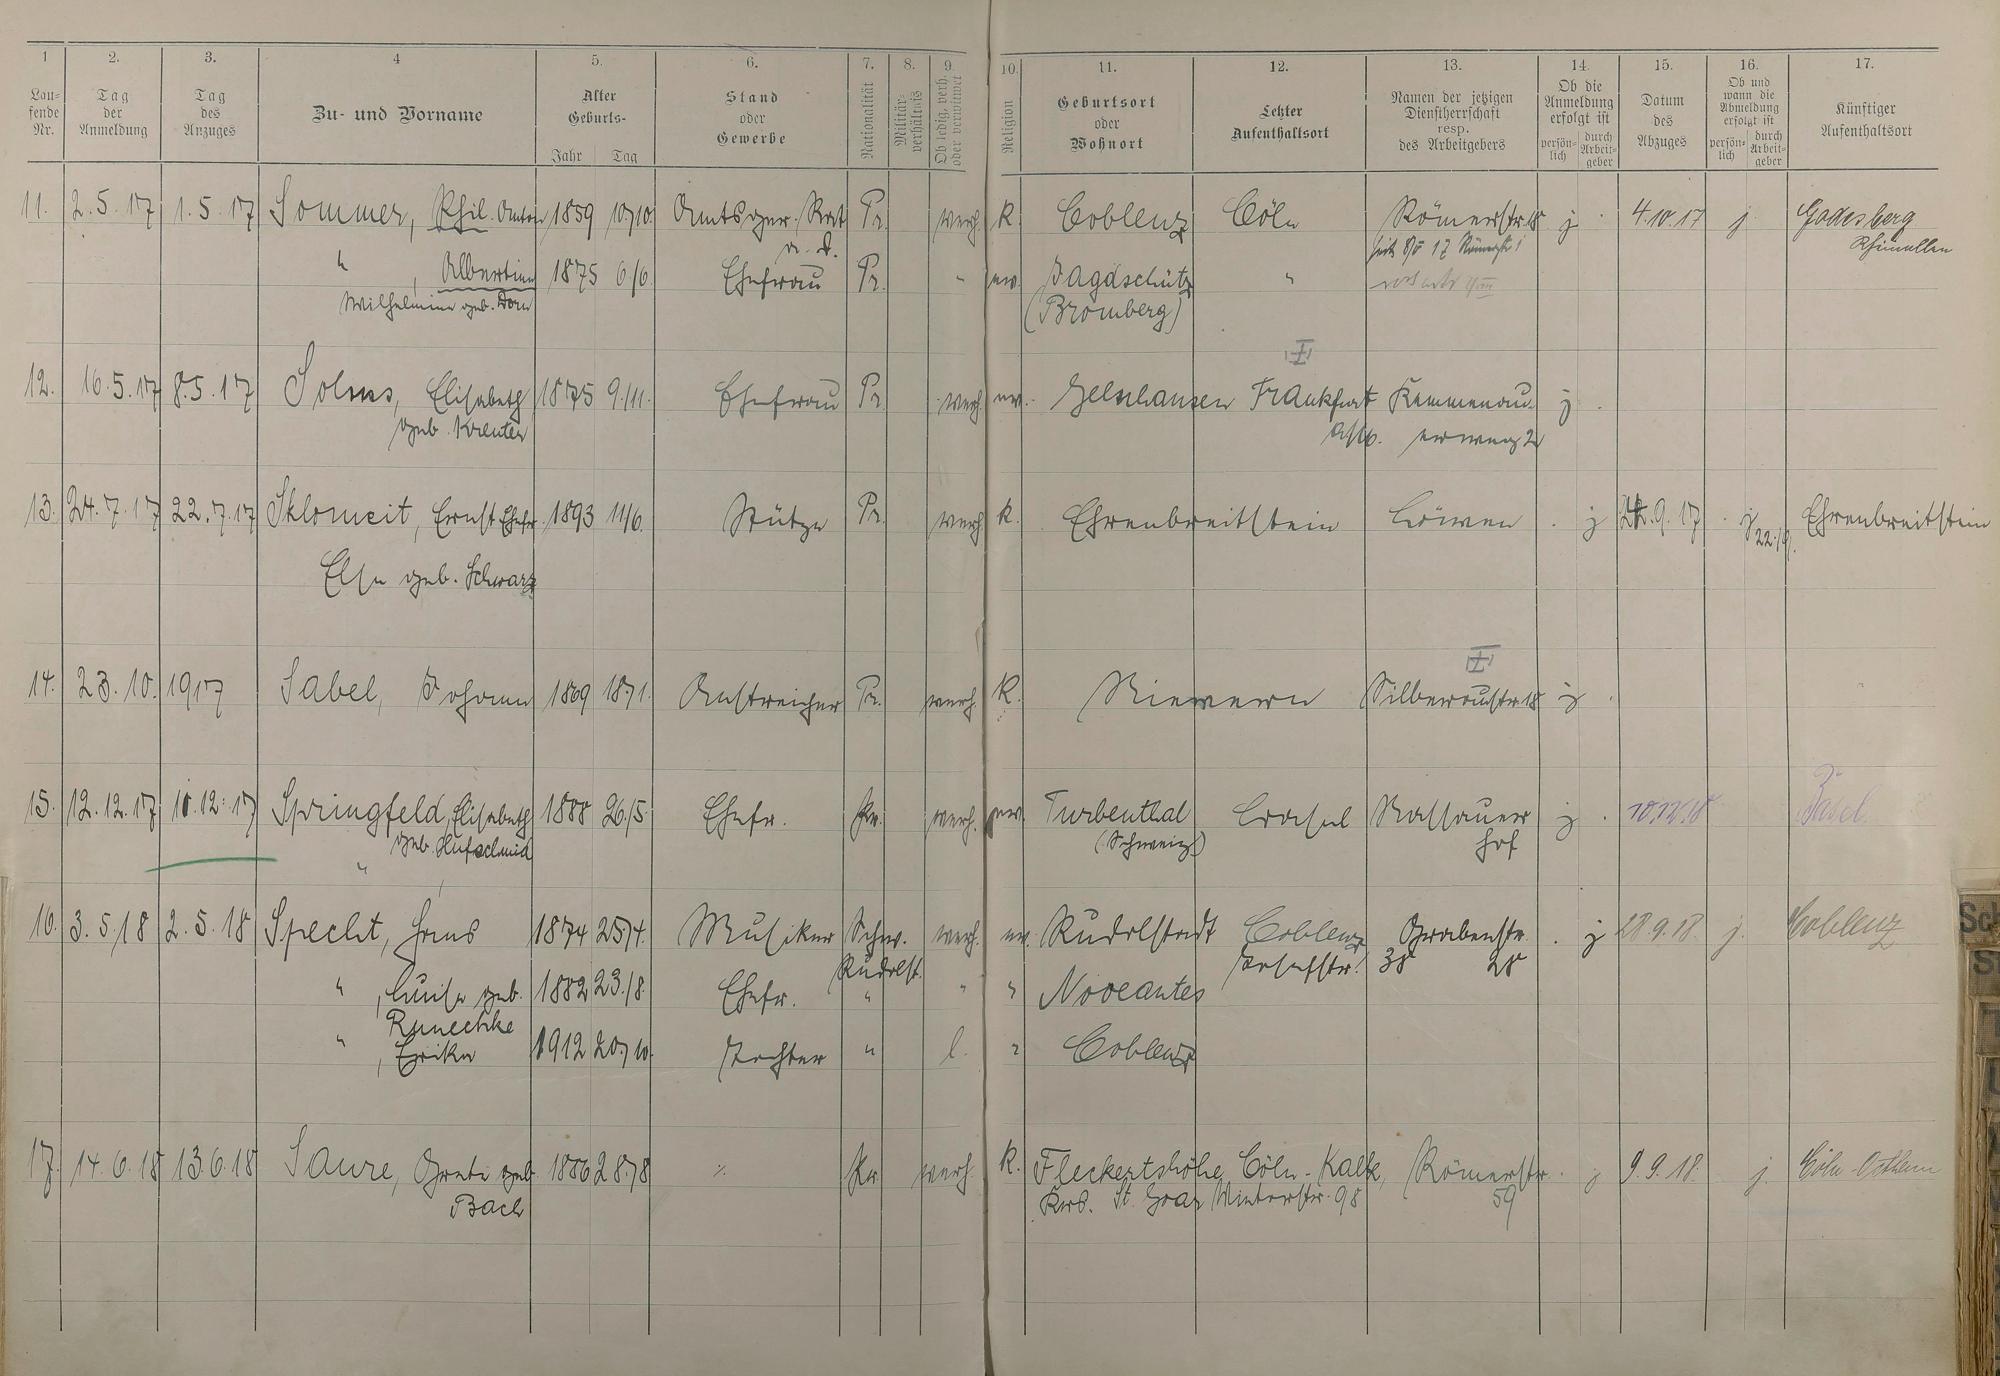 1 2. 3. 4 5. 6. 7. 8. 9. 10. 11. 12. 13. 14. 15. 16. 17.
Lau-
fende
Nr.
Tag
der
Anmeldung
Tag
des
Anzuges
Zu- und Vorname
Alter
Geburts-
Jahr Tag
Stand
oder
Gewerbe
Nationalität
Militär-
verhältnis
Ob ledig, verh.
oder verwitwet
Religion
Geburtsort
oder
Wohnort
Letzter
Aufenthaltsort
Namen der jetzigen
Dienstherrschaft
resp.
des Arbeitgebers
Ob die
Anmeldung
erfolgt ist
persön-
lich
durch
Arbeit-
geber
Datum
des
Abzuges
Ob und
wann die
Abmeldung
erfolgt ist
persön-
lich
durch
Arbeit-
geber
Künftiger
Aufenthaltsort
11. 2.5.17 1.5.17 Sommer, Phil. Anton 1859 10/10. Amtsger. Rat Pr. verh. k. Coblenz Cöln Römerstr. 18 j 4.10.17 j Godesberg
a. D. seit 8/5 17 Römerstr 1
" , Albertine 1875 6/6 Ehefrau Pr. " ev. Jagdschütz "
Wilhelmine geb. Dorn (Bromberg)
12. 16.5.17 8.5.17 Solms, Elisabeth 1875 9./11. Ehefrau Pr. verh. ev. Gelnhausen Frankfurt Kemmenau- j
geb. Kreuter erweg 2
13. 24.7.17 22.7.17 Sklomeit, Ernst Ehefr. 1893 11/6. Stütze Pr. verh. k. Ehrenbreitstein Löwen j 22.9.17 j 22./9. Ehrenbreitstein
Else geb. Schwarz
14. 23.10.1917 Sabel, Johann 1869 18/1. Anstreicher Pr. verh. k. Nievern Silberaustr. 18 j
15. 12.12.17 11.12.17 Springfeld, Elisabeth 1888 26./5. Ehefr. Pr. verh. ev. Turbenthal Cassel Nassauer j 10.12.18 Basel
geb. Hufschmid (Schweiz) Hof
"
16. 3.5.18 2.5.18 Specht, Hans 1874 25./4. Musiker Schw. verh. ev. Rudolstadt Coblenz Grabenstr. j 28.9.18. j. Coblenz
Rudolst. Josefstr. 38 28
" , Luise geb. 1882 23./8. Ehefr. " " " Noveantes
Runechke
" , Erika 1912 20./10. Tochter " l. " Coblenz
17. 14.6.18 13.6.18 Saure, Grete geb. 1886 28./8 ./. Pr. verh. k. Fleckertshöhe Cöln-Kalk, Römerstr. j 9.9.18. j. Cöln-Ostheim
Bach Krs. St. Goar Winterstr. 98 59